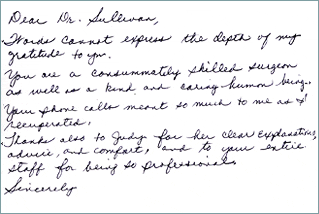 Dear Dr. Sullivan,
Words cannot express the depth of my
gratitude to you.
You are a consummately skilled surgeon
as well as a kind and caring human being.
Your phone calls meant so much to me as I
recuperated.
Thanks also to Judy for her clear explanations,
advice, and comfort, and to your entire
staff for being so professional.
Sincerely